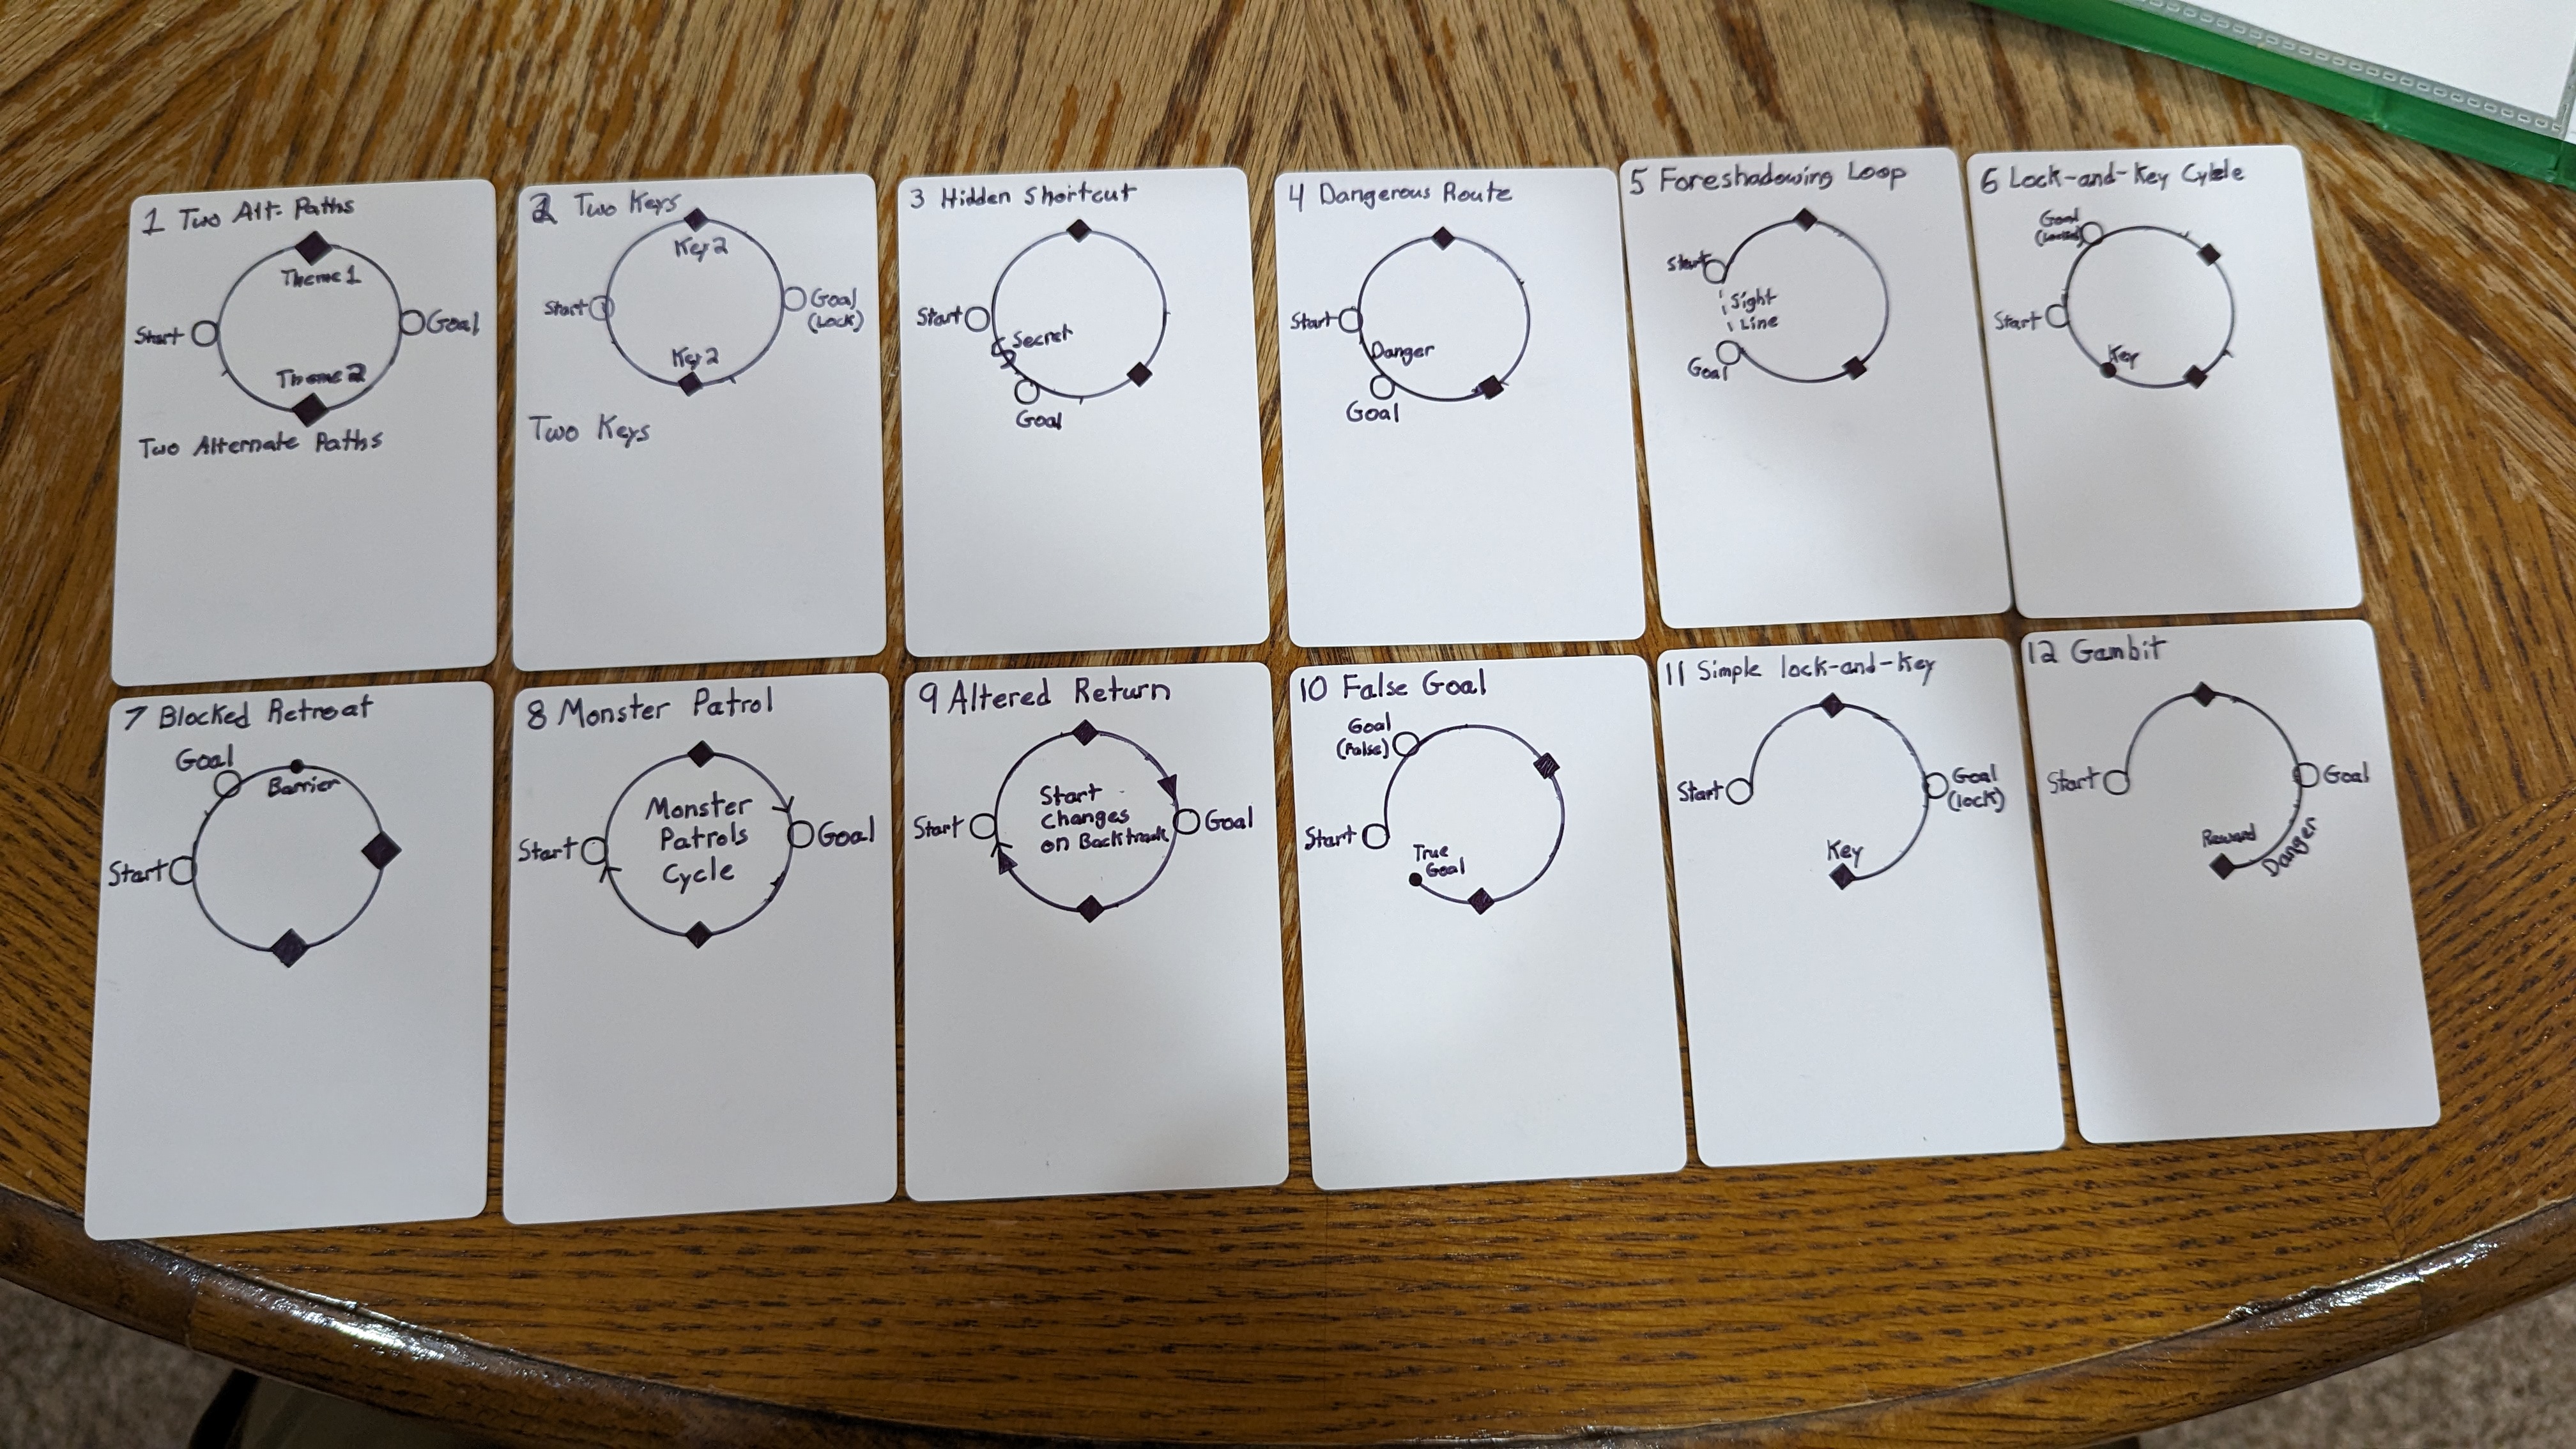 1 Two Alt. Paths
Theme 1
Start
Goal
Theme 2
Two Alternate Paths
2 Two Keys
Key 2
Start
Goal
(Lock)
Key 2
Two Keys
3 Hidden Shortcut
Start
Secret
Goal
4 Dangerous Route
Start
Danger
Goal
5 Foreshadowing Loop
Start
Sight
Line
Goal
6 Lock-and-Key Cycle
Goal
(Locked)
Start
Key
7 Blocked Retreat
Goal
Barrier
Start
8 Monster Patrol
Monster
Patrols
Cycle
Start
Goal
9 Altered Return
Start
Changes
on Backtrack
Start
Goal
10 False Goal
Goal
(False)
Start
True
Goal
11 Simple lock-and-key
Start
Goal
(lock)
Key
12 Gambit
Start
Goal
Reward
Danger